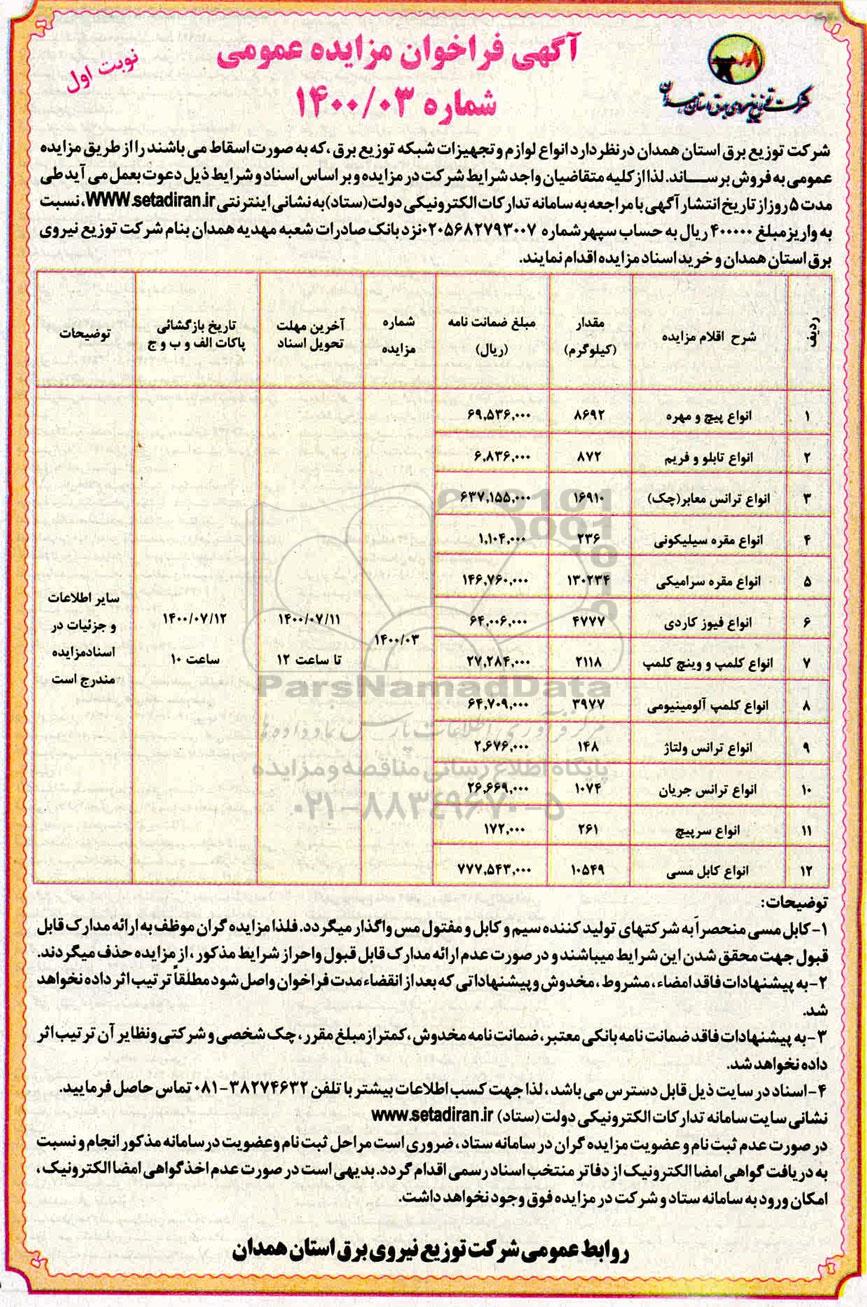 آگهی فراخوان مزایده عمومی
شماره ۱۴۰۰/۰۳
نوبت اول
شرکت توزیع نیروی برق استان همدان
شرکت توزیع برق استان همدان درنظر دارد انواع لوازم و تجهیزات شبکه توزیع برق ،که به صورت اسقاط می باشند را از طریق مزایده
عمومی به فروش برساند. لذا از کلیه متقاضیان واجد شرایط شرکت در مزایده و بر اساس اسناد و شرایط ذیل دعوت بعمل می آید طی
مدت ۵ روز از تاریخ انتشار آگهی با مراجعه به سامانه تدارکات الکترونیکی دولت(ستاد)به نشانی اینترنتی WWW.setadiran.ir، نسبت
به واریز مبلغ ۴۰۰۰۰۰ ریال به حساب سپهر شماره ۰۲۰۵۶۸۲۷۹۳۰۰۷ نزد بانک صادرات شعبه مهدیه همدان بنام شرکت توزیع نیروی
برق استان همدان و خرید اسناد مزایده اقدام نمایند.
ردیف | شرح اقلام مزایده | مقدار (کیلوگرم) | مبلغ ضمانت نامه (ریال) | شماره مزایده | آخرین مهلت تحویل اسناد | تاریخ بازگشائی پاکات الف و ب و ج | توضیحات
۱ | انواع پیچ و مهره | ۸۶۹۲ | ۶۹,۵۳۶,۰۰۰
۲ | انواع تابلو و فریم | ۸۷۲ | ۶,۸۳۶,۰۰۰
۳ | انواع ترانس معابر(چک) | ۱۶۹۱۰ | ۶۳۷,۱۵۵,۰۰۰
۴ | انواع مقره سیلیکونی | ۲۳۶ | ۱,۱۰۴,۰۰۰
۵ | انواع مقره سرامیکی | ۱۳۰۲۳۴ | ۱۴۶,۷۶۰,۰۰۰
۶ | انواع فیوز کاردی | ۴۷۷۷ | ۶۴,۰۰۶,۰۰۰
۷ | انواع کلمپ و وینچ کلمپ | ۲۱۱۸ | ۲۷,۲۸۴,۰۰۰
۸ | انواع کلمپ آلومینیومی | ۳۹۷۷ | ۶۴,۷۰۹,۰۰۰
۹ | انواع ترانس ولتاژ | ۱۴۸ | ۲,۶۷۶,۰۰۰
۱۰ | انواع ترانس جریان | ۱۰۷۴ | ۲۶,۶۶۹,۰۰۰
۱۱ | انواع سرپیچ | ۲۶۱ | ۱۷۲,۰۰۰
۱۲ | انواع کابل مسی | ۱۰۵۴۹ | ۷۷۷,۵۴۳,۰۰۰
۱۴۰۰/۰۳
۱۴۰۰/۰۷/۱۱
تا ساعت ۱۲
۱۴۰۰/۰۷/۱۲
ساعت ۱۰
سایر اطلاعات
و جزئیات در
اسنادمزایده
مندرج است
ParsNamadData
مرکز فرآوری اطلاعات پارس نماد داده ها
پایگاه اطلاع رسانی مناقصه و مزایده
۰۲۱-۸۸۳۴۹۶۷۰-۵
توضیحات:
۱-کابل مسی منحصراً به شرکتهای تولید کننده سیم و کابل و مفتول مس واگذار میگردد. فلذا مزایده گران موظف به ارائه مدارک قابل
قبول جهت محقق شدن این شرایط میباشند و در صورت عدم ارائه مدارک قابل قبول واحراز شرایط مذکور ، از مزایده حذف میگردند.
۲-به پیشنهادات فاقد امضاء ، مشروط ، مخدوش و پیشنهاداتی که بعد از انقضاء مدت فراخوان واصل شود مطلقاً ترتیب اثر داده نخواهد
شد.
۳-به پیشنهادات فاقد ضمانت نامه بانکی معتبر، ضمانت نامه مخدوش ،کمتر از مبلغ مقرر ، چک شخصی و شرکتی ونظایر آن ترتیب اثر
داده نخواهد شد.
۴-اسناد در سایت ذیل قابل دسترس می باشد ، لذا جهت کسب اطلاعات بیشتر با تلفن ۳۸۲۷۴۶۳۲-۰۸۱ تماس حاصل فرمایید.
نشانی سایت سامانه تدارکات الکترونیکی دولت (ستاد) www.setadiran.ir
در صورت عدم ثبت نام و عضویت مزایده گران در سامانه ستاد ، ضروری است مراحل ثبت نام وعضویت درسامانه مذکور انجام و نسبت
به دریافت گواهی امضا الکترونیک از دفاتر منتخب اسناد رسمی اقدام گردد. بدیهی است در صورت عدم اخذ گواهی امضا الکترونیک ،
امکان ورود به سامانه ستاد و شرکت در مزایده فوق وجود نخواهد داشت.
روابط عمومی شرکت توزیع نیروی برق استان همدان